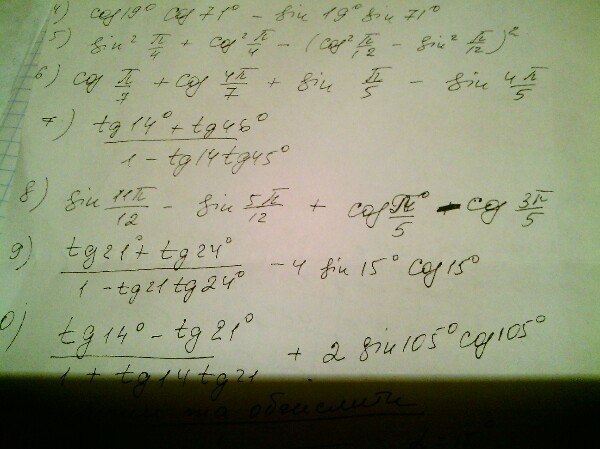 4) cos19° cos71° - sin 19° sin 71°
5) sin² π/4 + cos² π/4 - (cos² π/12 - sin² π/12)²
6) cos π/7 + cos 4π/7 + sin π/5 - sin 4π/5
7) tg14° + tg46° / 1 - tg14tg45°
8) sin 11π/12 - sin 5π/12 + cos π°/5 - cos 3π/5
9) tg21° + tg24° / 1 - tg21tg24° - 4 sin15° cos15°
0) tg14° - tg21° / 1 + tg14tg21 + 2 sin105° cos105°
та обчислити